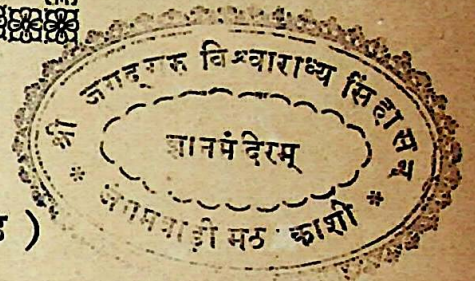 श्री जगद्गुरु विश्वाराध्य सिंहासन
ज्ञानमंदिरम्
* जंगमवाड़ी मठ काशी *
)